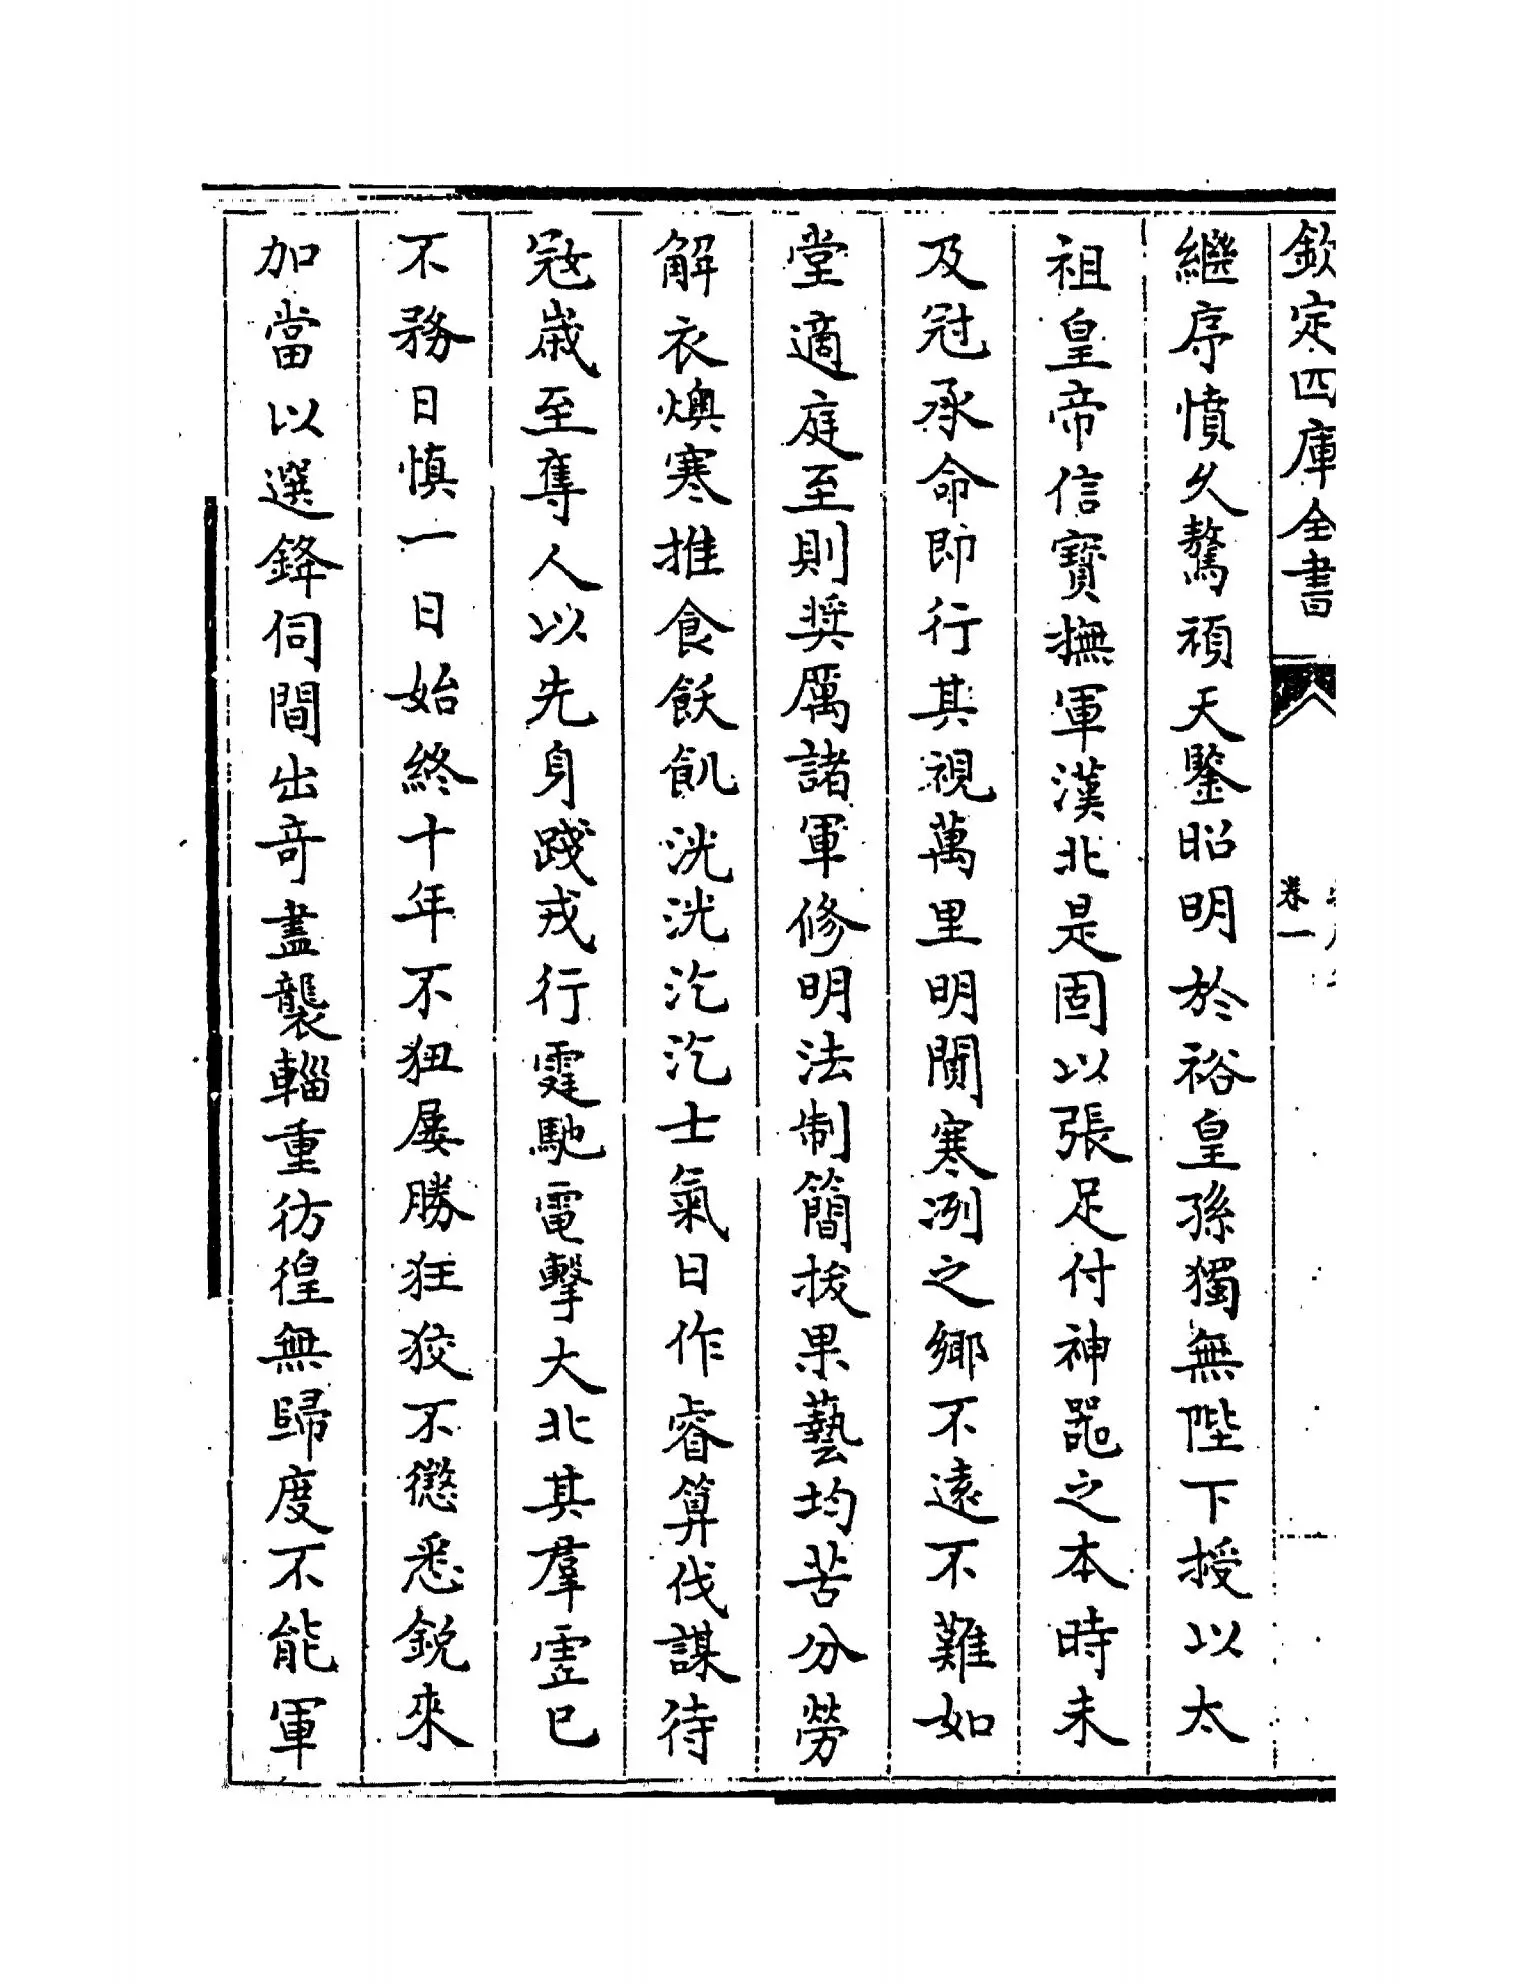 欽定四庫全書
卷一
繼序憤久驁頑天鑒昭明於裕皇孫獨無陛下授以太
祖皇帝信寳撫軍漠北是固以張足付神噐之本時未
及冠承命即行其視萬里明閴寒冽之鄉不逺不難如
堂適庭至則奨厲諸軍修明法制簡拔果藝均苦分勞
解衣燠寒推食飫飢洸洸汔汔士氣日作睿算伐謀待
冦歳至奪人以先身踐戎行霆馳電擊大北其羣䨇已
不務日慎一日始終十年不狃屢勝狂狡不懲悉鋭來
加當以選鋒伺間出竒盡襲輜重彷徨無歸度不能軍